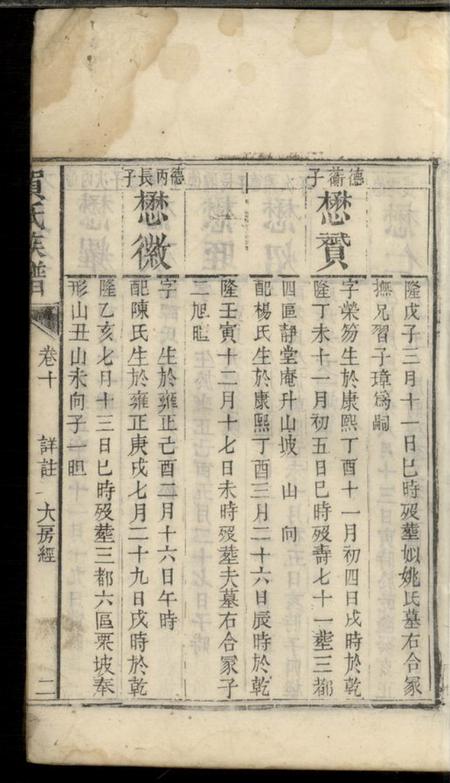 隆戊子三月十一日巳時殁塟姒姚氏墓右合冢
撫兄習子璋爲嗣
德衞子
懋贇
字榮笏生於康熙丁酉十一月初四日戌時於乾
隆丁未十一月初五日巳時殁壽七十一塟三都
四區靜堂庵升山坡 山 向
配楊氏生於康熙丁酉三月二十六日辰時於乾
隆壬寅十二月十七日未時殁塟夫墓右合冢子
二旭昛
德丙長子
懋徽
字 生於雍正己酉二月十六日午時
配陳氏生於雍正庚戌七月二十九日戌時於乾
隆乙亥七月十三日巳時殁塟三都六區栗坡奉
形山丑山未向子一昛
賀氏族譜
卷十 詳註 大房經 二